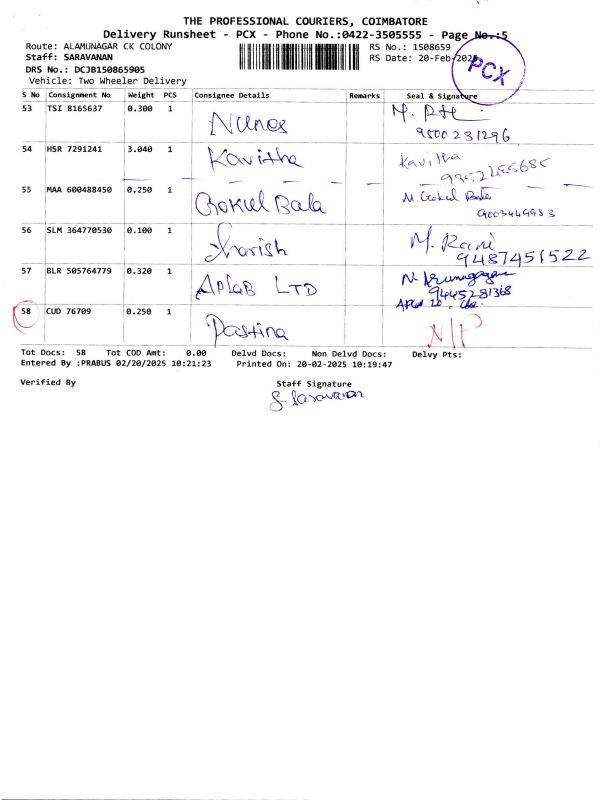 THE PROFESSIONAL COURIERS, COIMBATORE
Delivery Runsheet - PCX - Phone No.:0422-3505555 - Page No.:5
Route: ALAMUNAGAR CK COLONY
RS No.: 1508659
Staff: SARAVANAN
RS Date: 20-Feb-202
PCX
DRS No.: DCJB150865905
Vehicle: Two Wheeler Delivery
S No Consignment No Weight PCS Consignee Details Remarks Seal & Signature
53 TSI 8165637 0.300 1 Nunes M.
9500231296
54 HSR 7291241 3.040 1 Kavitha Kavitha
55 MAA 600488450 0.250 1 Gokul Bala M. Gokul Bala
9003449953
56 SLM 364770530 0.100 1 Harish M. Rani
9487451522
57 BLR 505764779 0.320 1 APLAB LTD
9445281368
58 CUD 76709 0.250 1 Pastina N/P
Tot Docs: 58 Tot COD Amt: 0.00 Delvd Docs: Non Delvd Docs: Delvy Pts:
Entered By :PRABUS 02/20/2025 10:21:23 Printed On: 20-02-2025 10:19:47
Verified By Staff Signature
S Saravanan